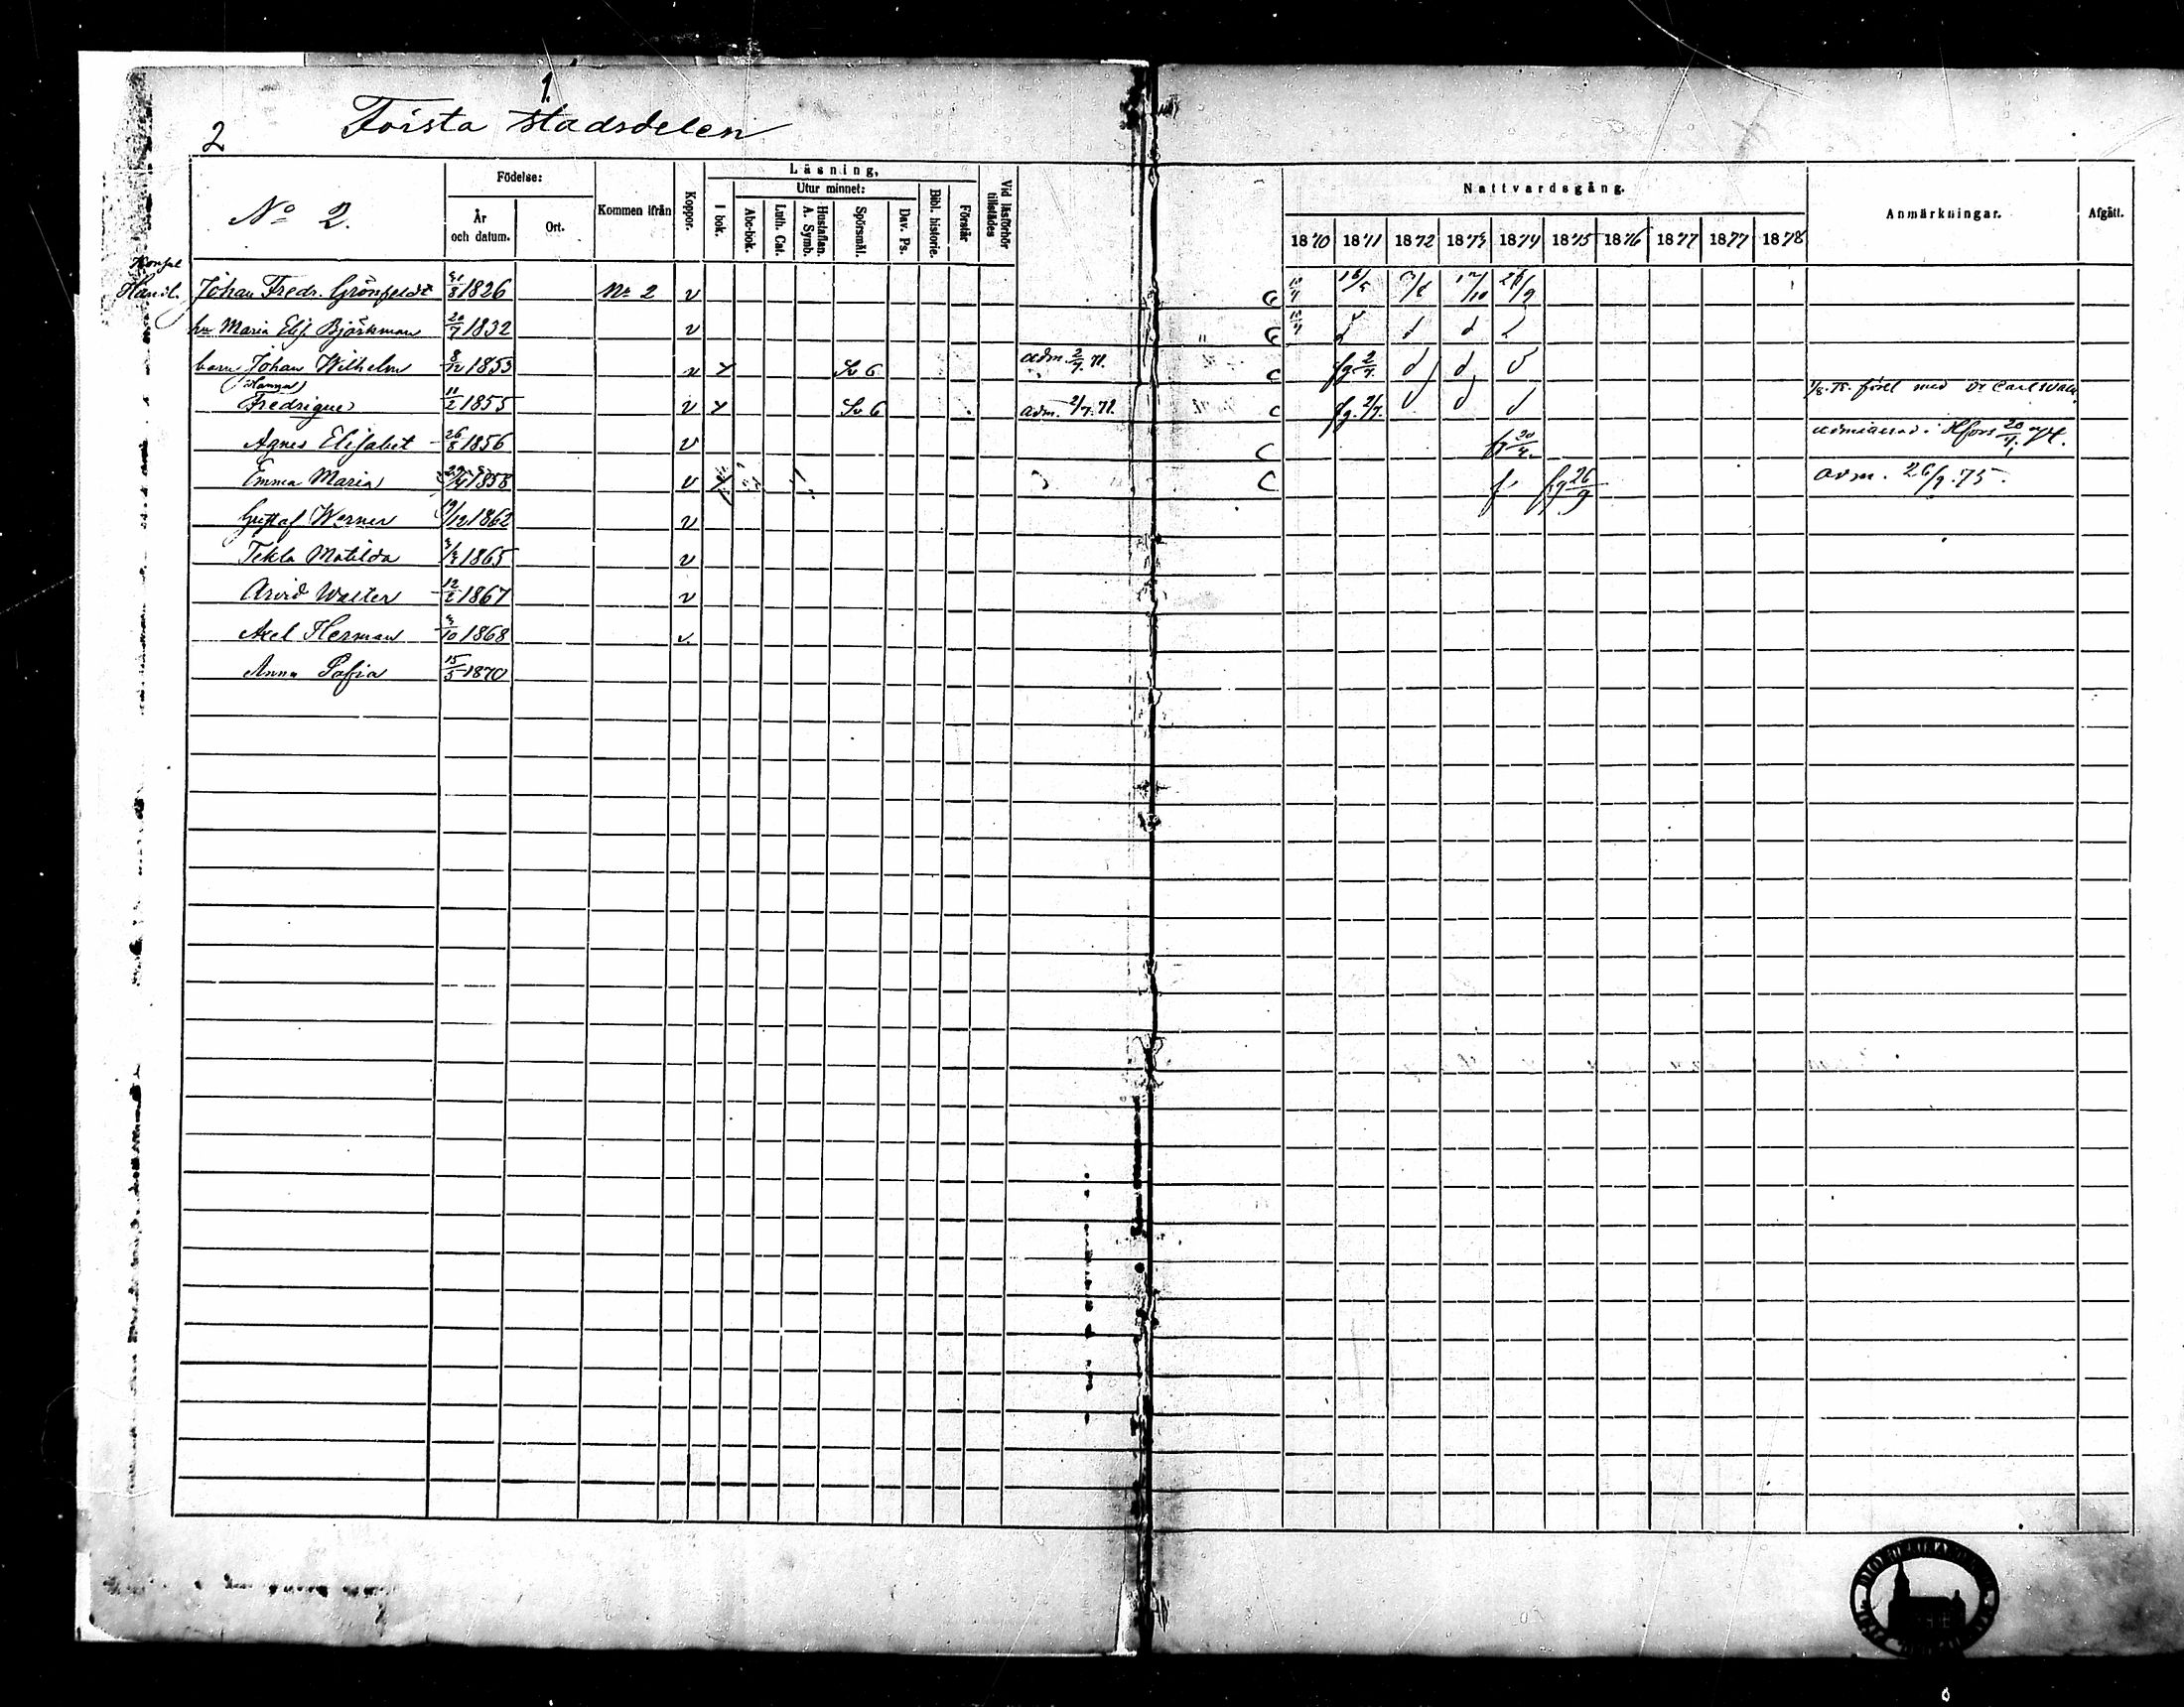 1.
2 Första stadsdelen
No 2.
Födelse:
År och datum.
Ort.
Kommen ifrån
Koppor.
Läsning,
I bok.
Utur minnet:
Abc-bok.
Luth. Cat.
Hustaflan. A. Symb.
Spörsmål.
Dav. Ps.
Bibl. historie.
Förstår
Vid läsförhör tillstädes
Nattvardsgång.
1870 1871 1872 1873 1874 1875 1876 1877 1877 1878
Anmärkningar.
Afgått.
Konsul
Handl. Johan Fredr. Grönfeldt 1826 No 2 v
hu Maria Elis. Björkman 20/7 1832 v
barn Johan Wilhelm 8/12 1853 v Sv 6 adm. 2/7. 71. C fg 2/7
(Hanna)
Fredrique 11/2 1855 v Sv 6 adm. 2/7. 71. C fg. 2/7. 1/8. 75. förel med Dr Carl
Agnes Elisabet 26/8 1856 v C
Emma Maria 1858 v C fg 26/9 adm. 26/9. 75.
Gustaf Werner /12 1862 v
Tekla Matilda 1865 v
Arvid Walter 12/2 1867 v
Axel Herman /10 1868 v.
Anna Sofia 15/5 1870